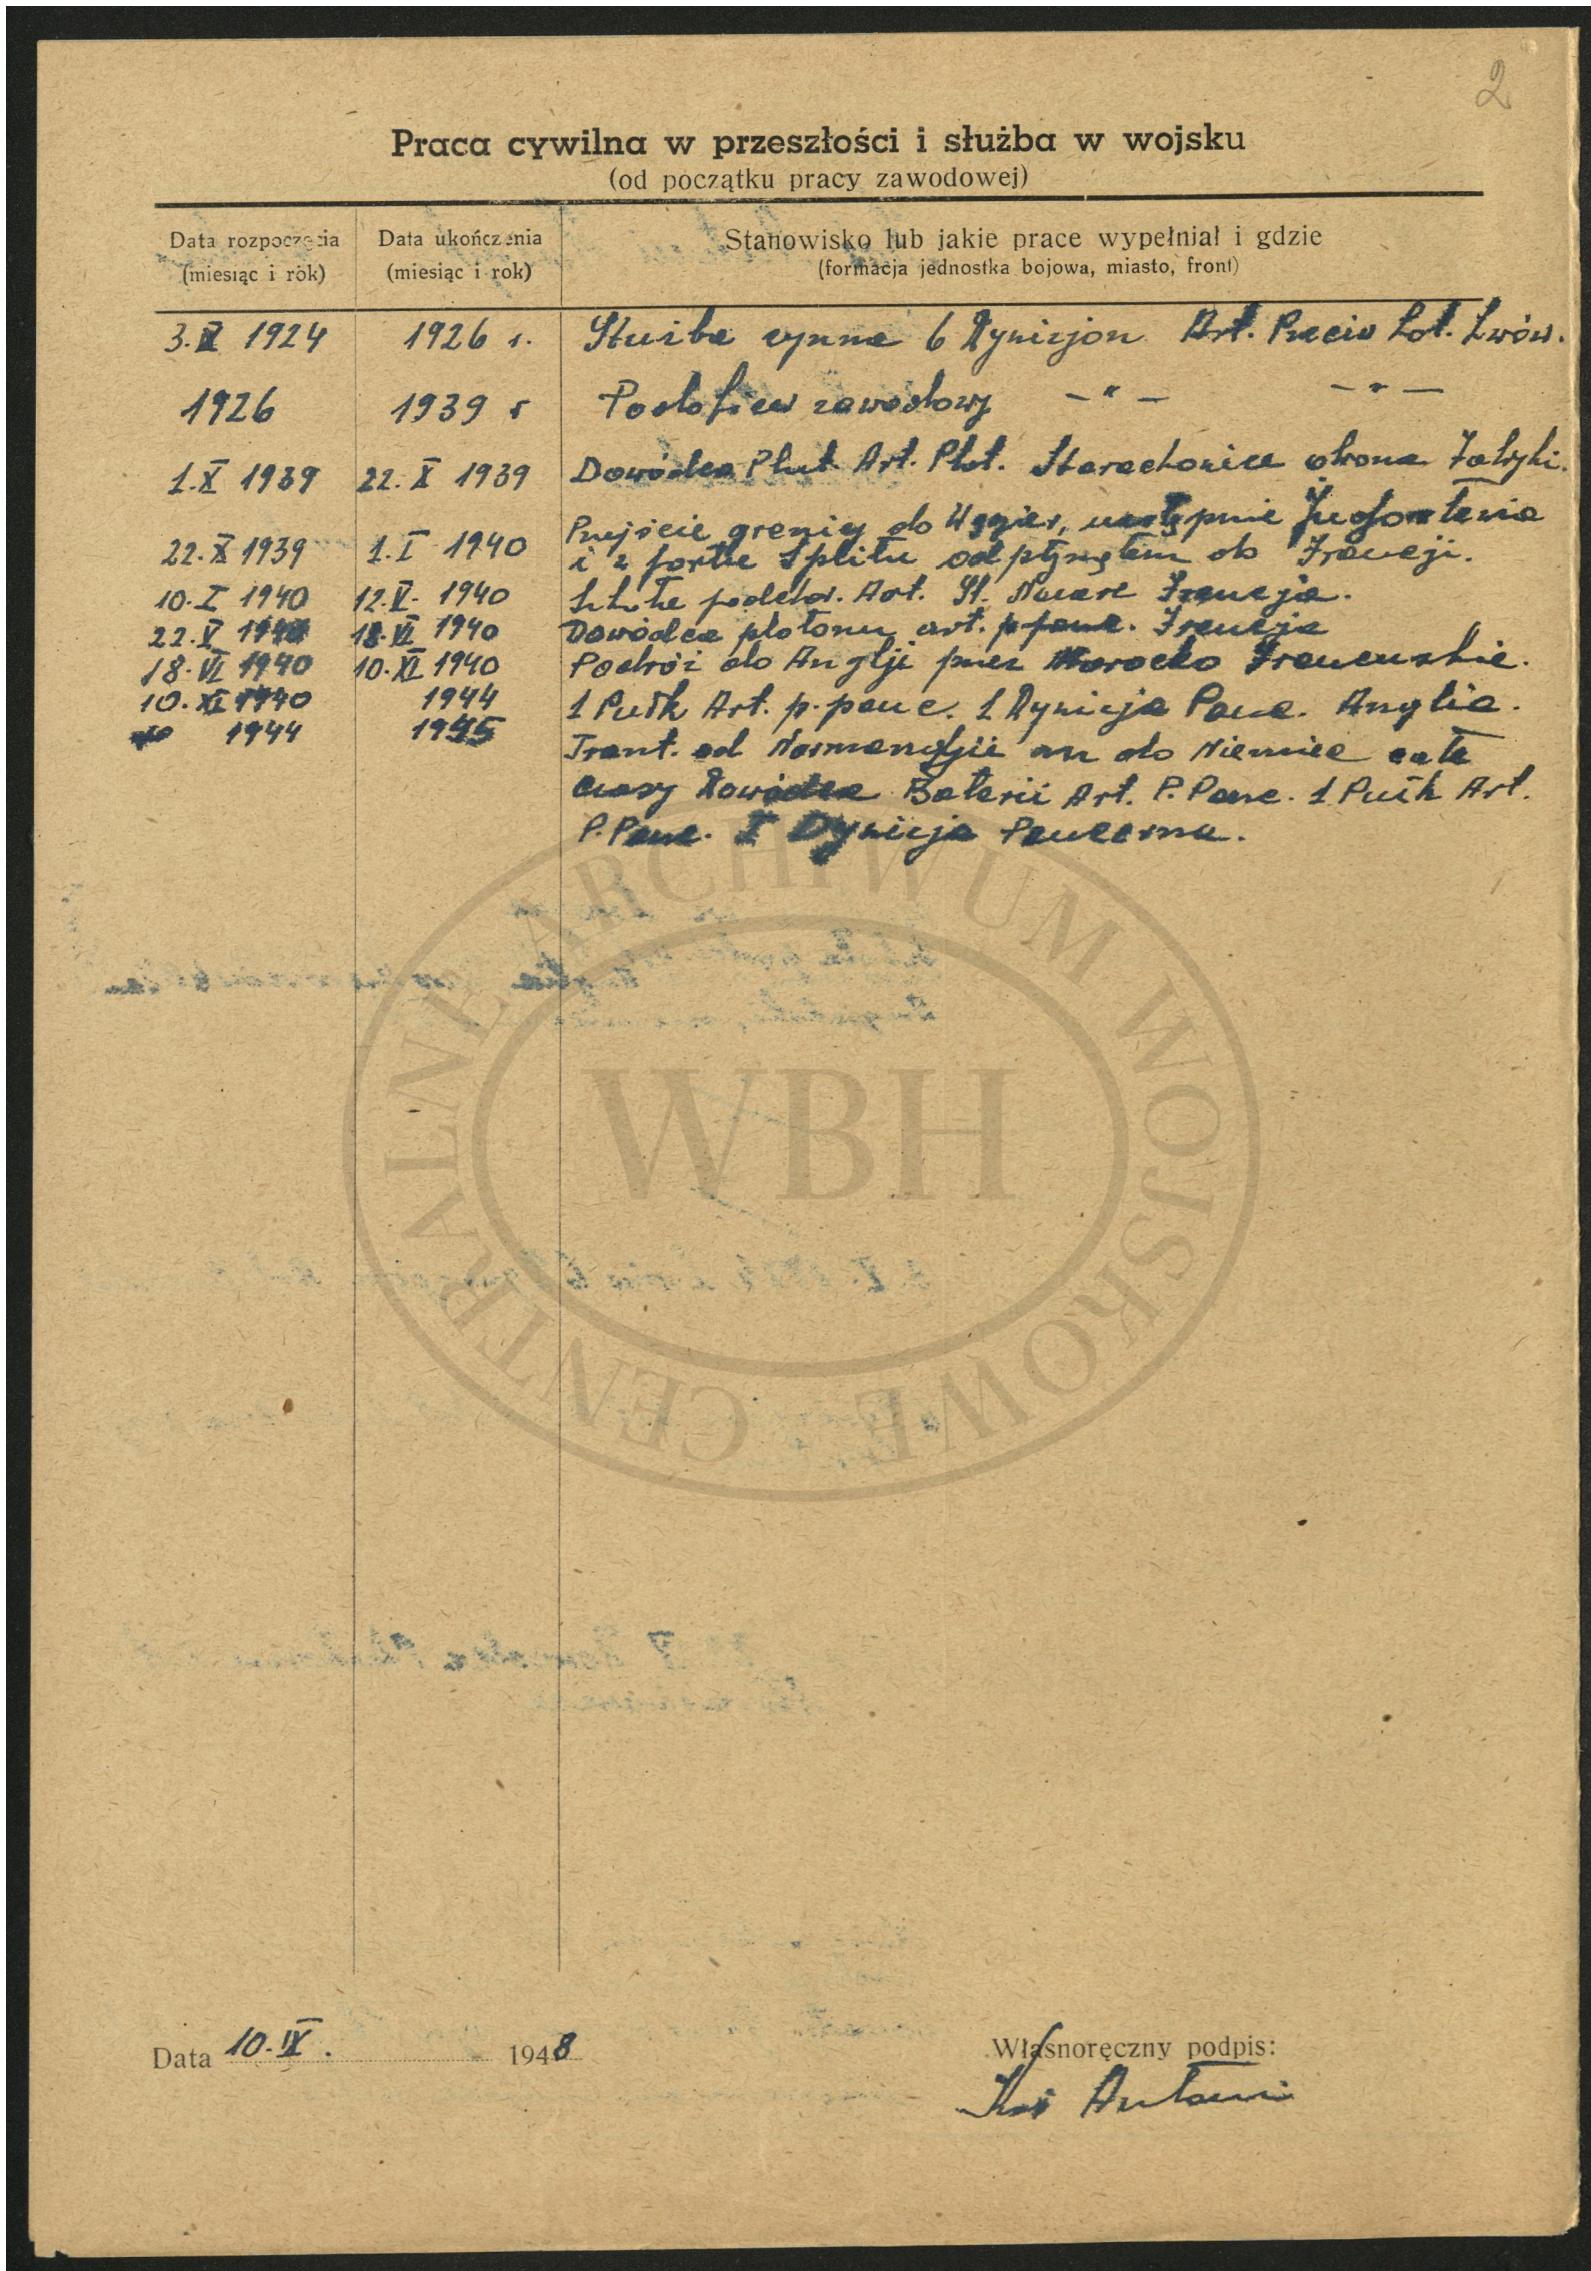 2
Praca cywilna w przeszłości i służba w wojsku
(od początku pracy zawodowej)
Data rozpoczęcia
(miesiąc i rok)
Data ukończenia
(miesiąc i rok)
Stanowisko lub jakie prace wypełniał i gdzie
(formacja jednostka bojowa, miasto, front)
3. X 1924 1926 r. Służba czynna 6 Dywizjon Art. Przeciw Lot. Lwów.
1926 1939 r Podoficer zawodowy — " — — " —
1. X 1939 22. X 1939 Dowódca Plut. Art. Plot. Starachowice obrona Fabryki.
22. X 1939 1. I 1940 Przejście granicy do Węgier, następnie Jugosławia
i z portu Splitu odpłynąłem do Francji.
10. I 1940 12. V. 1940 Szkoła podchor. Art. St. Nazare Francja.
22. V 1940 18. VI 1940 Dowódca plotonu art. p-panc. Francja
18. VI 1940 10. XI 1940 Podróż do Anglji przez Marocko Francuskie.
10. XI 1940 1944 1 Pułk Art. p. panc. 1 Dywizja Panc. Anglia.
1944 1945 Front. od Normandji aż do Niemiec całe
czasy Dowódca Baterii Art. P. Panc. 1 Pułk Art.
P. Panc. I Dywizja Pancerna.
CENTRALNE ARCHIWUM WOJSKOWE
WBH
Data 10. IX. 1948
Własnoręczny podpis:
Antoni